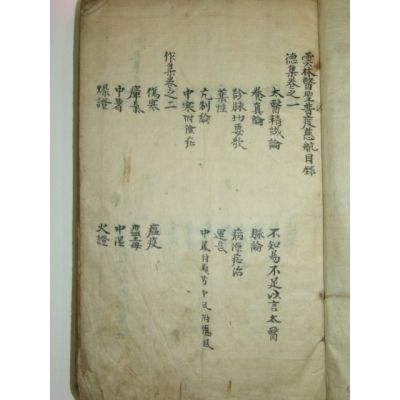 雲林醫聖普度慈航目錄
德集卷之一
太醫精誠論 不知易不足以言太醫
養真論 脉論
診脉切要歌 病源症治
藥性 運氣
亢制論
中寒附陰症
作集卷之二
傷寒 瘟疫
瘴氣 蠱毒
中暑 中濕
燥證 火證